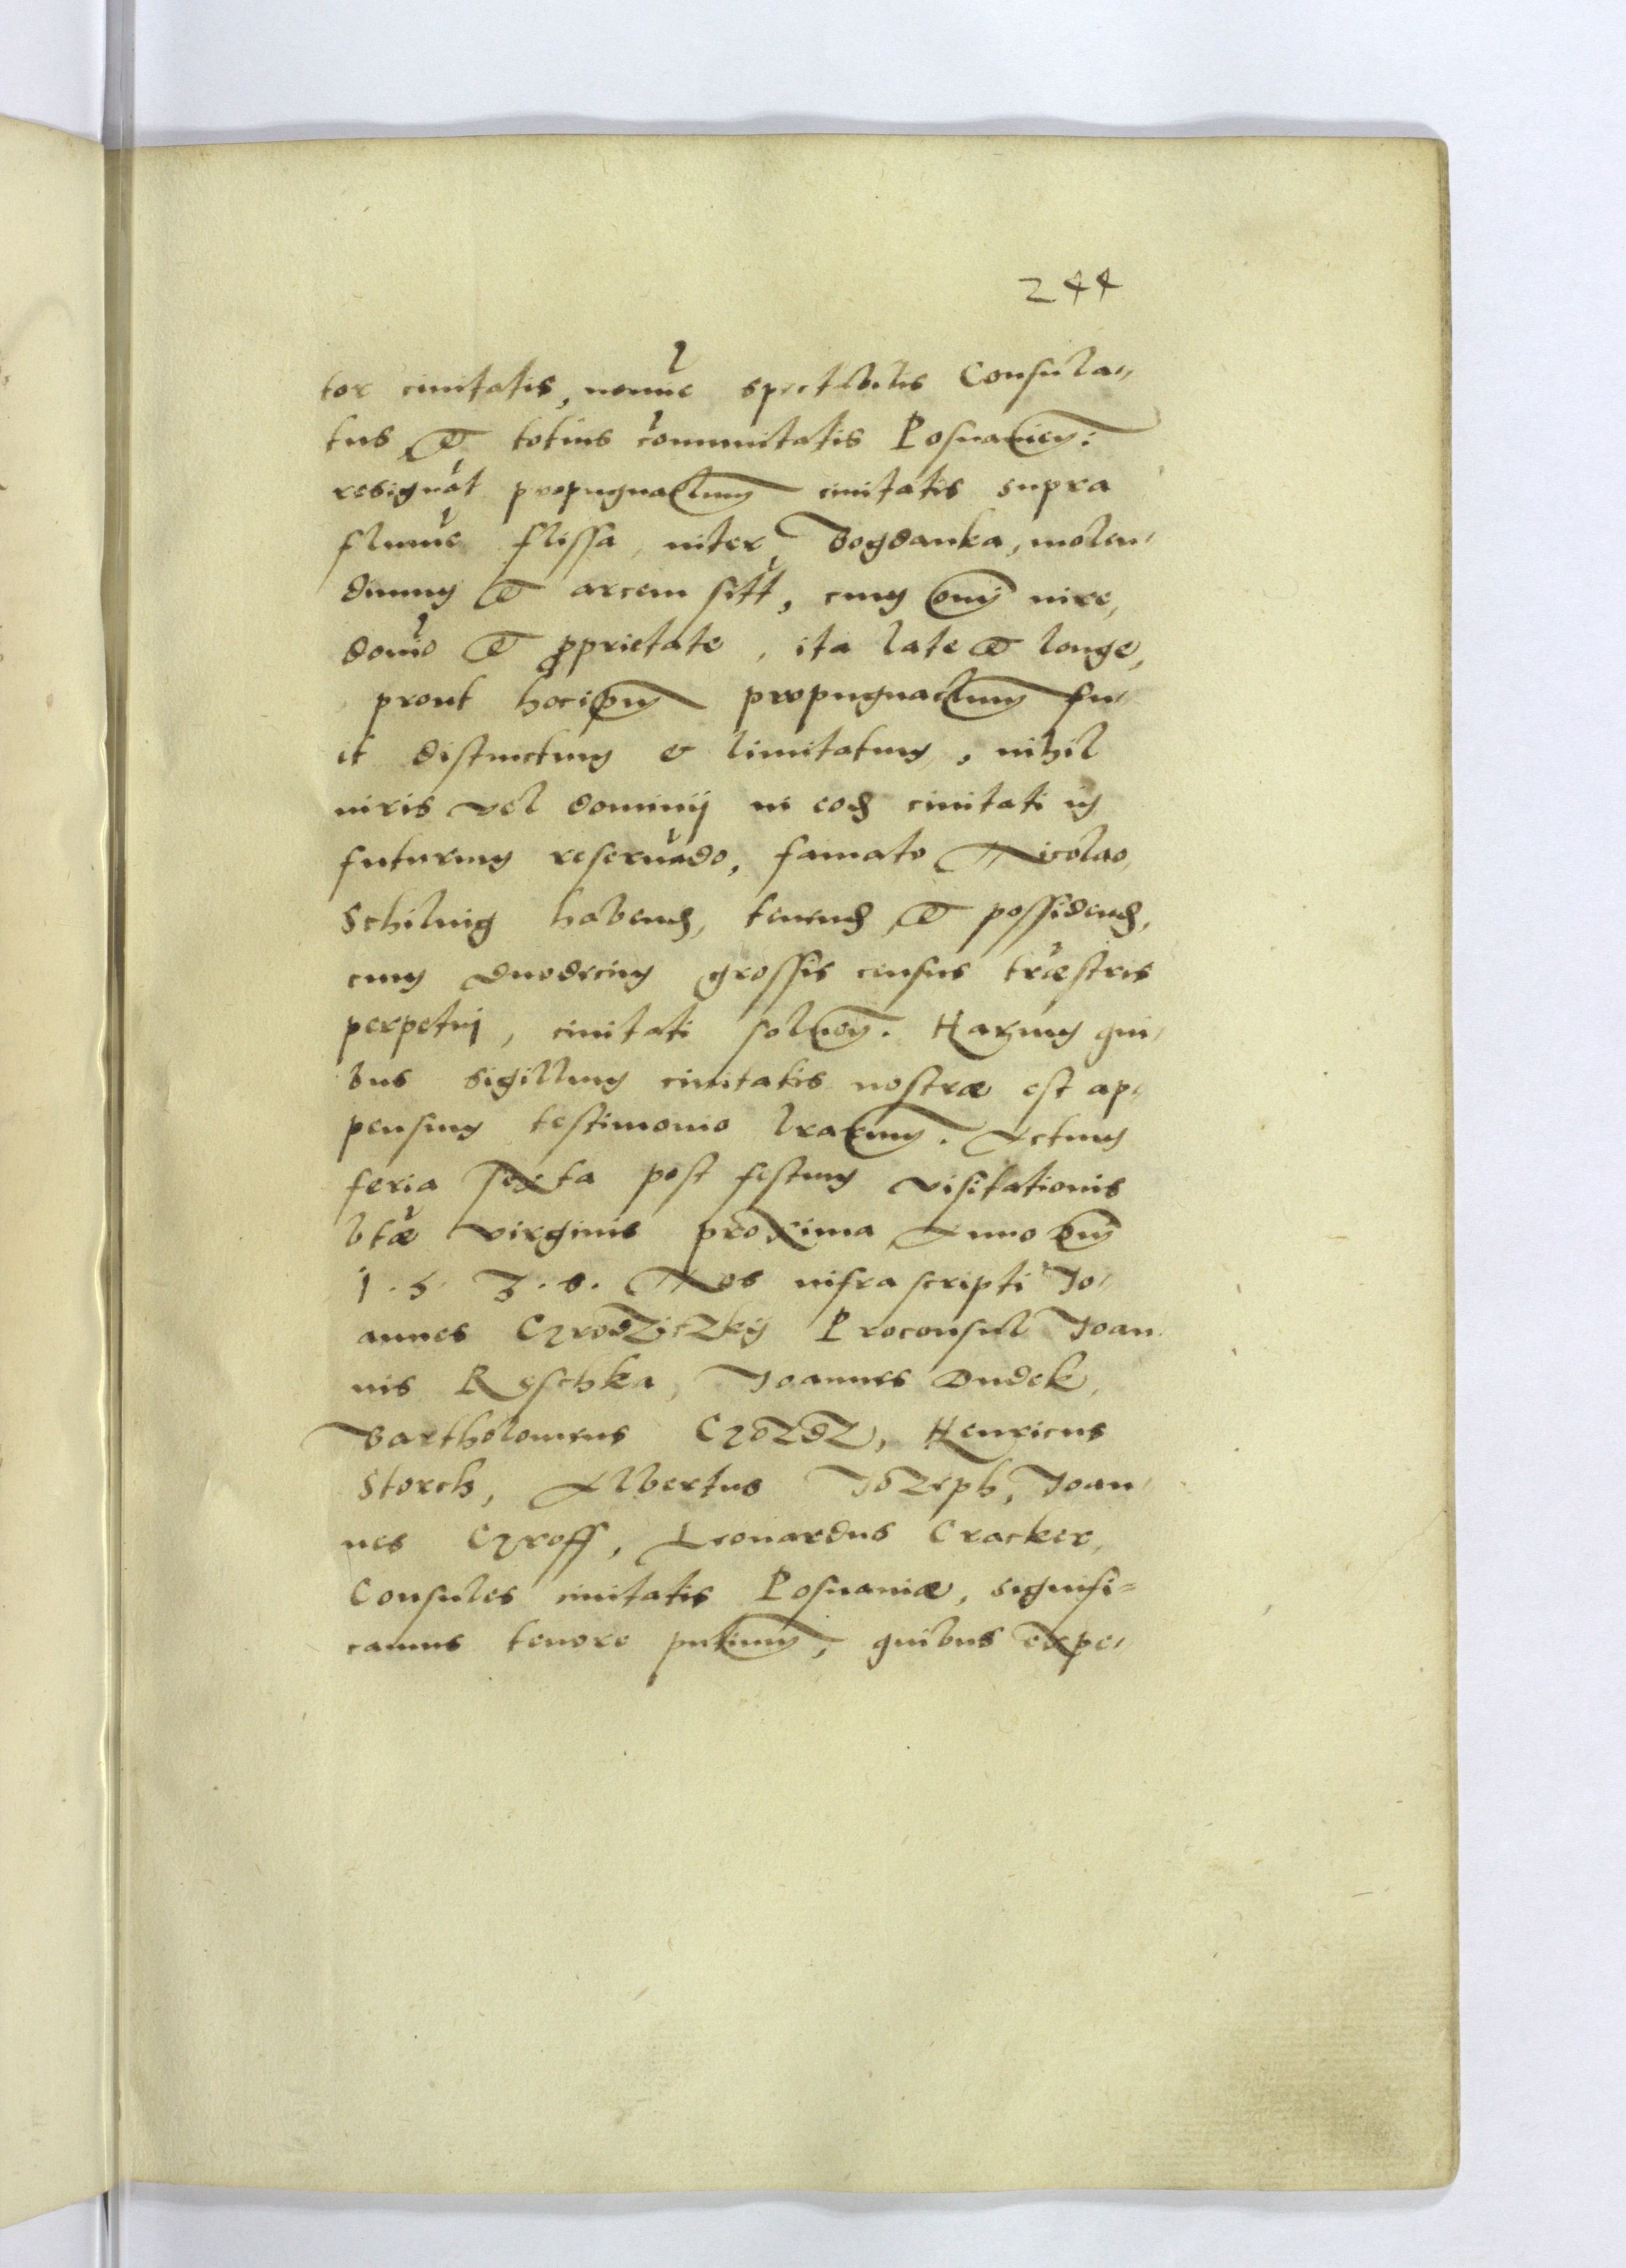 244
tor ciuitatis, nomīe spectabilis Consula„
tus & totius cōmunitatis Posnanien̄:
resignāt propugnaclum ciuitatis supra
flumīe flissa, inter Bogdanka, molen„
dinum & arcem sitt̄, cum om̄i iure,
domīo & proprietate, ita late & longe,
prout hocip̄m propugnaclum fu„
it distinctum & limitatum, nihil
iuris vel dominij in eod ciuitati in
futurum reseruādo, famato Nicolao
Schiling habend, tenend & possidend,
cum duodecim grossis census tr̄æstris
perpetuj, ciuitati soluen̄. Harum qui„
bus sigillum ciuitatis nostræ est ap„
pensum testimonio l̄rarum. Actum
feria sexta post festum visitationis
b̄tæ virginis proxima Anno Dn̄i
1.5.3.8. Nos infra scripti Jo„
annes Grodziczkij Proconsul Joan
nis Reschka, Joannes Dudek,
Bartholomeus Gozdz, Henricus
Storch, Albertus Jozeph, Joan„
nes Groff, Leonardus Cracker,
Consules ciuitatis Posnaniæ, signifi=
camus tenore pn̄tium, quibus expe„